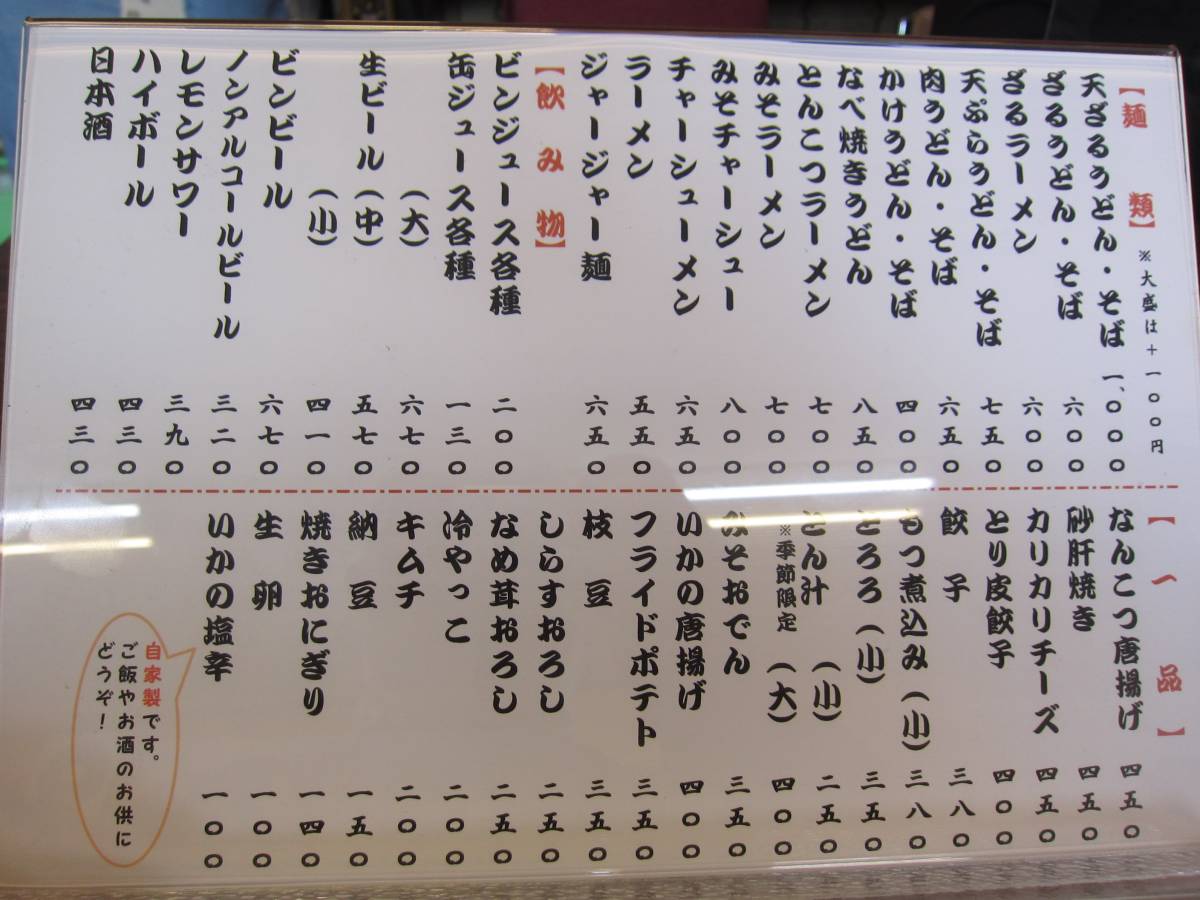 【麺類】 ※大盛は+一〇〇円
天ざるうどん・そば 一、〇〇〇
ざるうどん・そば 六〇〇
ざるラーメン 六〇〇
天ぷらうどん・そば 七五〇
肉うどん・そば 六五〇
かけうどん・そば 四〇〇
なべ焼きうどん 八五〇
とんこつラーメン 七〇〇
みそラーメン 七〇〇
みそチャーシュー 八〇〇
チャーシューメン 六五〇
ラーメン 五五〇
ジャージャー麺 六五〇
【飲み物】
ビンジュース各種 二〇〇
缶ジュース各種 一三〇
(大) 六七〇
生ビール(中) 五七〇
(小) 四一〇
ビンビール 六七〇
ノンアルコールビール 三二〇
レモンサワー 三九〇
ハイボール 四三〇
日本酒 四三〇
【一品】
なんこつ唐揚げ 四五〇
砂肝焼き 四五〇
カリカリチーズ 四五〇
とり皮餃子 四〇〇
餃子 三八〇
もつ煮込み(小) 三八〇
とろろ(小) 三五〇
とん汁(小) 二五〇
※季節限定 (大) 四〇〇
みそおでん 三五〇
いかの唐揚げ 四〇〇
フライドポテト 三五〇
枝豆 三五〇
しらすおろし 二五〇
なめ茸おろし 二五〇
冷やっこ 二〇〇
キムチ 二〇〇
納豆 一五〇
焼きおにぎり 一四〇
生卵 一〇〇
いかの塩辛 一〇〇
自家製です。
ご飯やお酒のお供に
どうぞ!